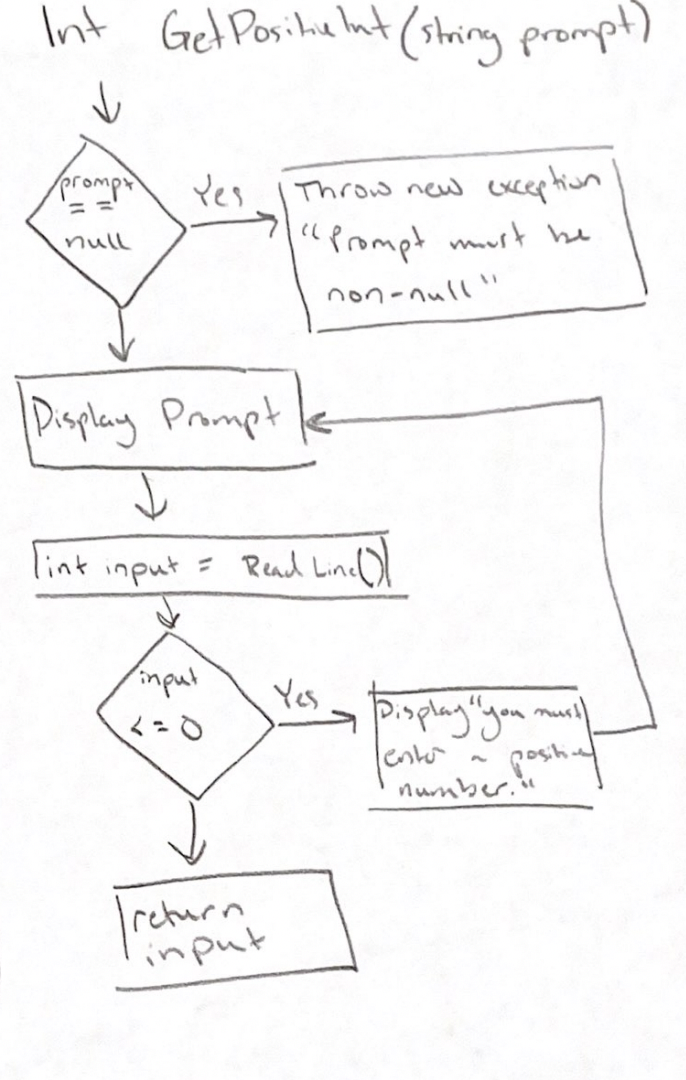 Int GetPositiveInt(string prompt)
prompt
==
null
Yes
Throw new exception
"Prompt must be
non-null"
Display Prompt
int input = ReadLine()
input
<= 0
Yes
Display "you must
enter a positive
number."
return
input